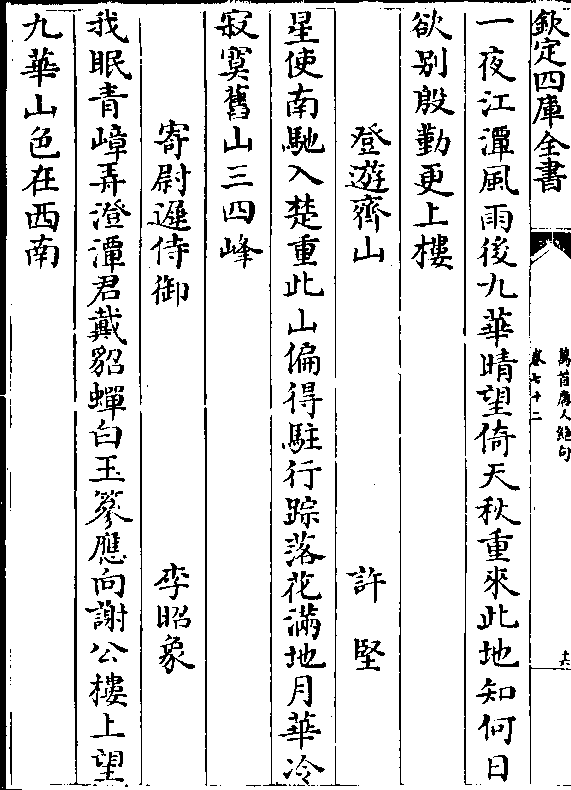 欽定四庫全書
萬首唐人絶句
卷七十二
一夜江潭風雨後九華晴望倚天秋重來此地知何日
欲别殷勤更上樓
登遊齊山 許堅
星使南馳入楚重此山偏得駐行踪落花滿地月華冷
寂寞舊山三四峰
寄尉遲侍御 李昭象
我眠青嶂弄澄潭君戴貂蟬白玉篸應向謝公樓上望
九華山色在西南